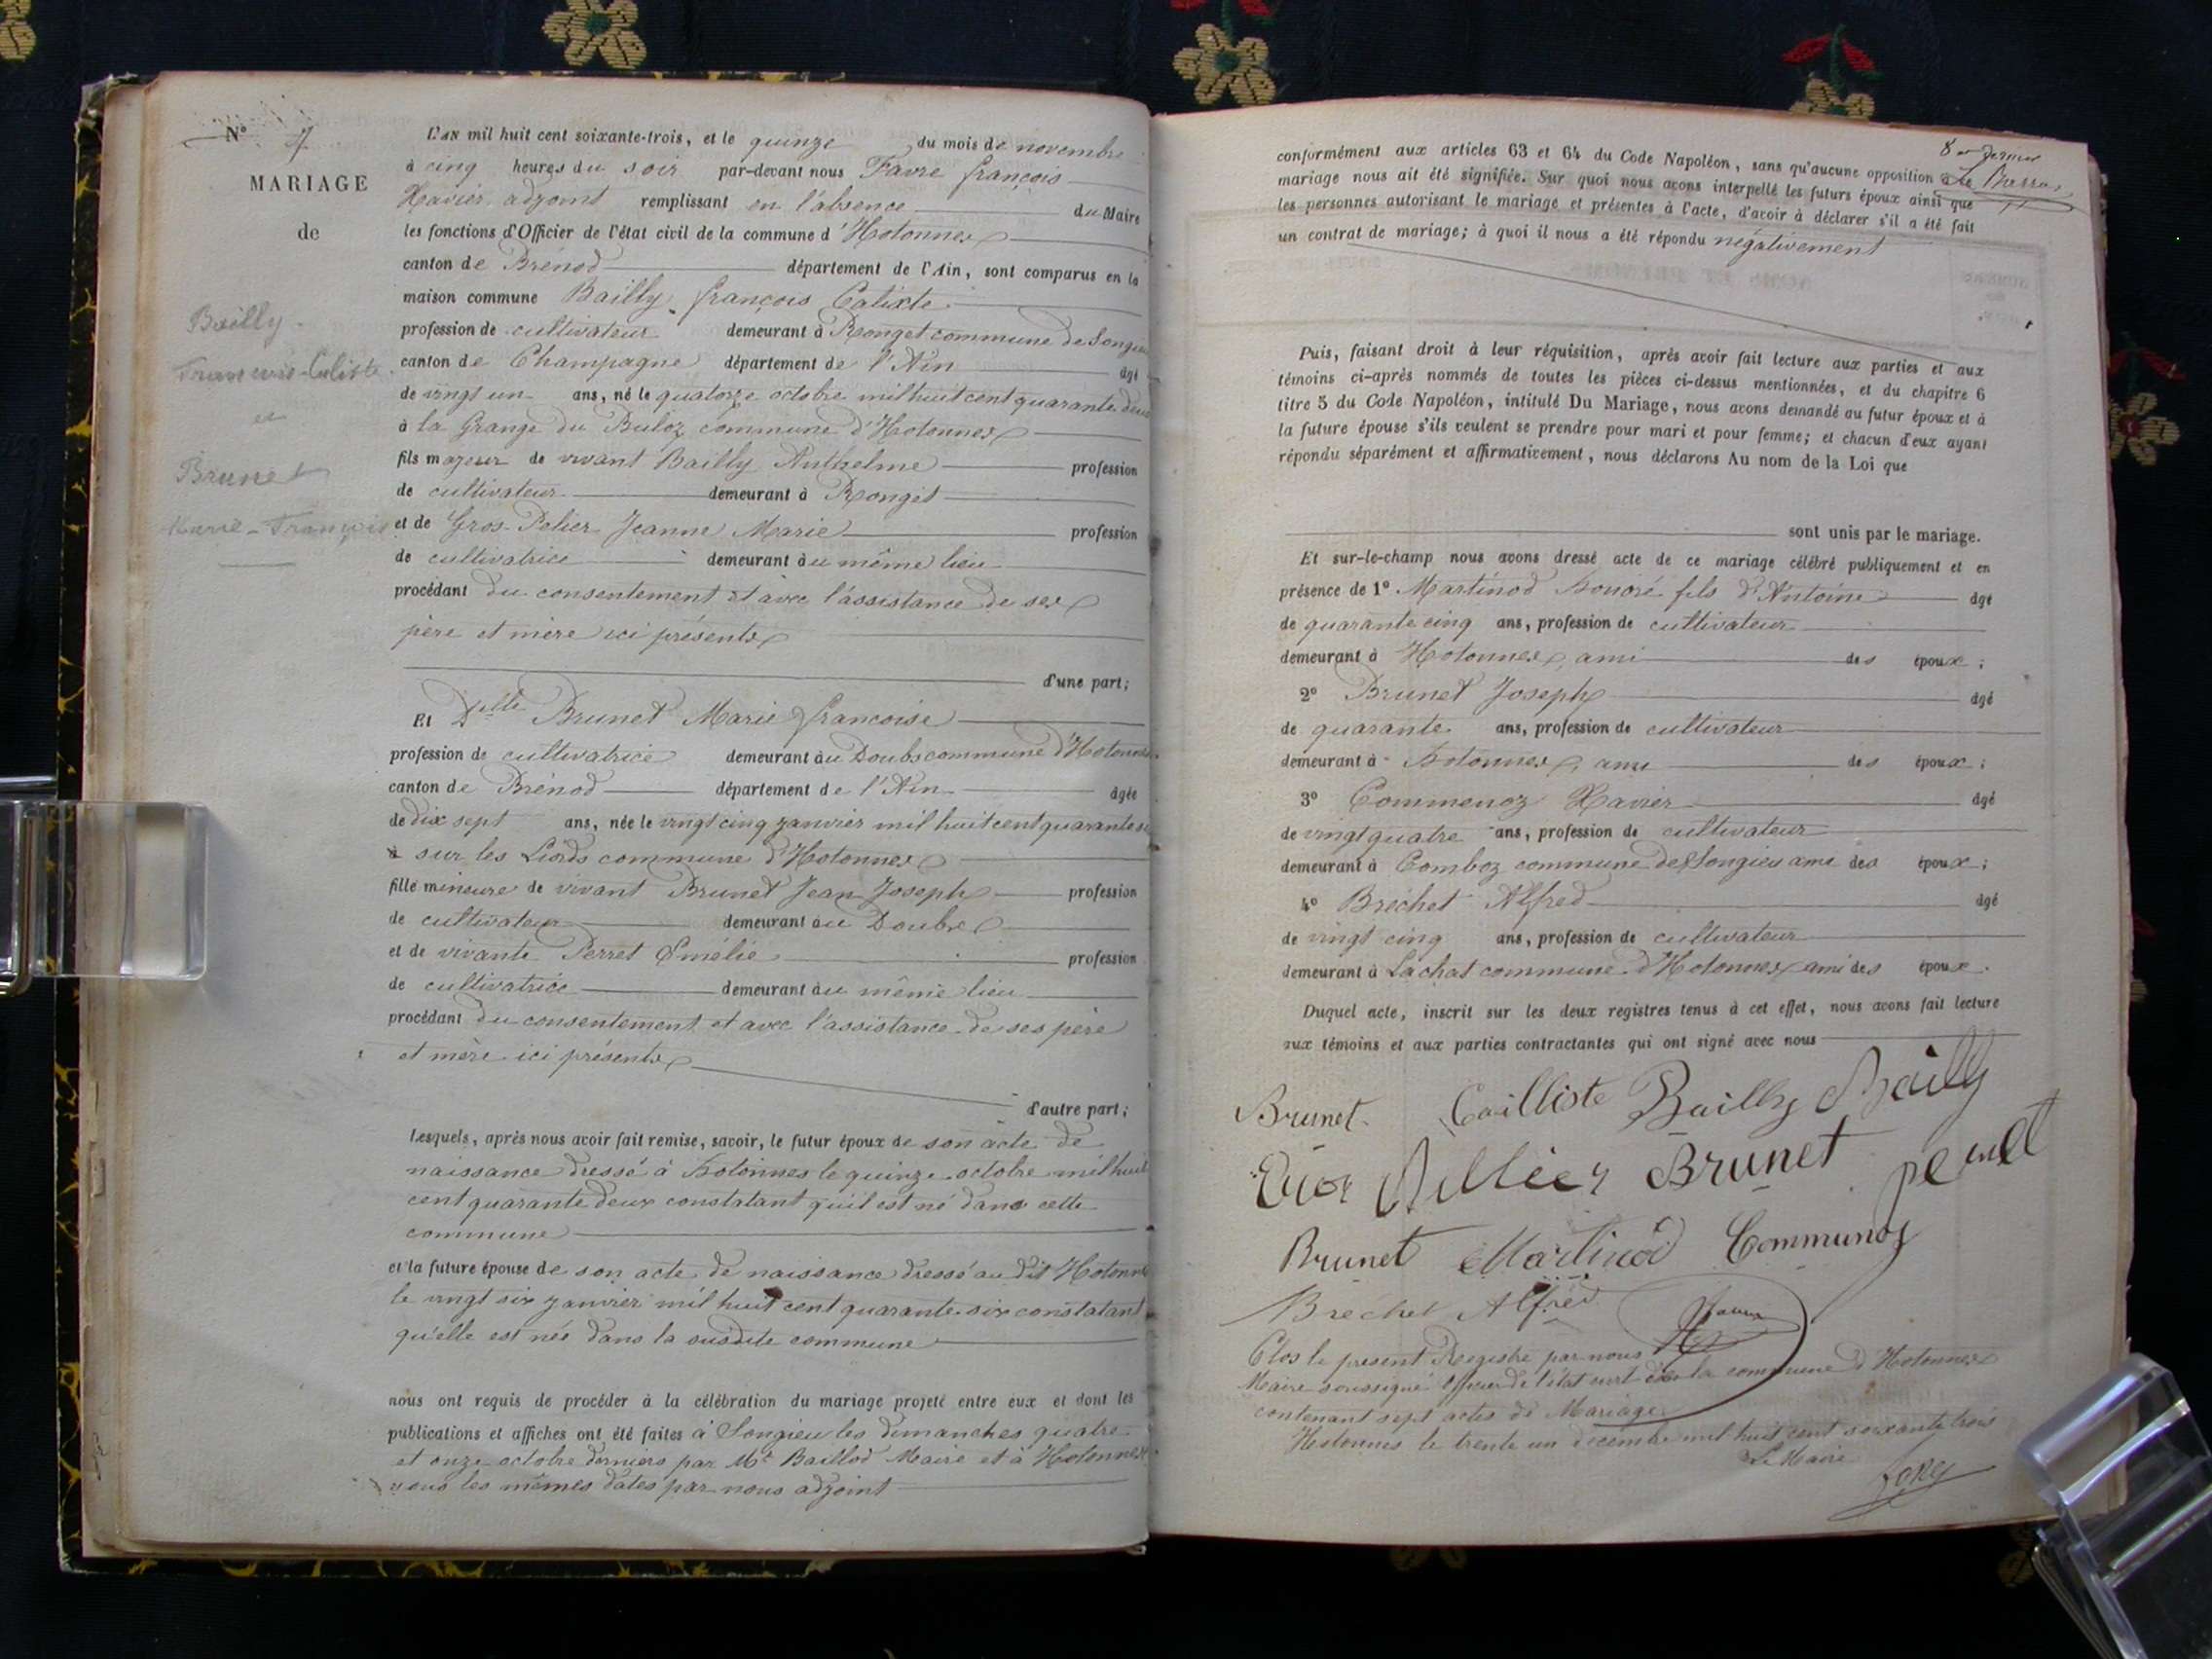 N° 7
MARIAGE
de
Bailly
François-Caliste
et
Brunet
Marie-François
L'AN mil huit cent soixante-trois, et le quinze du mois de novembre
à cinq heures du soir par-devant nous Favre françois
Xavier, adjoint remplissant en l'absence du Maire
les fonctions d'Officier de l'état civil de la commune d'Hotonnes
canton de Brénod département de l'Ain, sont comparus en la
maison commune Bailly françois Calixte
profession de cultivateur demeurant à Ronget commune de Songieu
canton de Champagne département de l'Ain âgé
de vingt un ans, né le quatorze octobre mil huit cent quarante deux
à la Grange du Buloz commune d'Hotonnes
fils majeur de vivant Bailly Anthelme profession
de cultivateur demeurant à Ronget
et de Gros-Pelier Jeanne Marie profession
de cultivatrice demeurant au même lieu
procédant du consentement et avec l'assistance de ses
père et mère ici présents
d'une part;
Et Delle Brunet Marie françoise
profession de cultivatrice demeurant au Doubs commune d'Hotonnes
canton de Brénod département de l'Ain âgée
de dix sept ans, née le vingt cinq janvier mil huit cent quarante six
à sur les Liods commune d'Hotonnes
fille mineure de vivant Brunet Jean Joseph profession
de cultivateur demeurant au Doubs
et de vivante Perret Emélie profession
de cultivatrice demeurant au même lieu
procédant du consentement et avec l'assistance de ses père
et mère ici présents
d'autre part;
Lesquels, après nous avoir fait remise, savoir, le futur époux de son acte de
naissance dressé à hotonnes le quinze octobre mil huit
cent quarante deux constatant qu'il est né dans cette
commune
et la future épouse de son acte de naissance dressé au dit Hotonnes
le vingt six janvier mil huit cent quarante six constatant
qu'elle est née dans la susdite commune
nous ont requis de procéder à la célébration du mariage projeté entre eux et dont les
publications et affiches ont été faites à Songieu les dimanches quatre
et onze octobre derniers par Mr Baillod Maire et à Hotonnes
les mêmes dates par nous adjoint
8e et dernier
conformément aux articles 63 et 64 du Code Napoléon, sans qu'aucune opposition à ce
mariage nous ait été signifiée. Sur quoi nous avons interpellé les futurs époux ainsi que
les personnes autorisant le mariage et présentes à l'acte, d'avoir à déclarer s'il a été fait
un contrat de mariage; à quoi il nous a été répondu négativement
Puis, faisant droit à leur réquisition, après avoir fait lecture aux parties et aux
témoins ci-après nommés de toutes les pièces ci-dessus mentionnées, et du chapitre 6
titre 5 du Code Napoléon, intitulé Du Mariage, nous avons demandé au futur époux et à
la future épouse s'ils veulent se prendre pour mari et pour femme; et chacun d'eux ayant
répondu séparément et affirmativement, nous déclarons Au nom de la Loi que
sont unis par le mariage.
Et sur-le-champ nous avons dressé acte de ce mariage célébré publiquement et en
présence de 1° Martinod honoré fils d'Antoine âgé
de quarante cinq ans, profession de cultivateur
demeurant à Hotonnes, ami des époux;
2° Brunet Joseph âgé
de quarante ans, profession de cultivateur
demeurant à hotonnes, ami des époux;
3° Commenoz Xavier âgé
de vingt quatre ans, profession de cultivateur
demeurant à Comboz commune de Songieu ami des époux;
4° Bréchet Alfred âgé
de vingt cinq ans, profession de cultivateur
demeurant à Lachat commune d'Hotonnes ami des époux.
Duquel acte, inscrit sur les deux registres tenus à cet effet, nous avons fait lecture
aux témoins et aux parties contractantes qui ont signé avec nous
Brunet Cailliste Bailly Bailly
Brunet
Brunet Martinod Communoz
Bréchet Alfred Favre
Clos le present Registre par nous
Maire soussigné officier de l'état civil de la commune d'Hotonnes
contenant sept actes de Mariage
Hotonnes le trente un décembre mil huit cent soixante trois
Le Maire